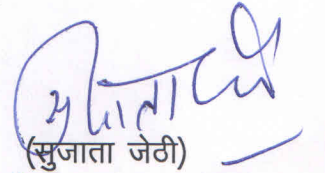 सुजाता
(सुजाता जेठी)